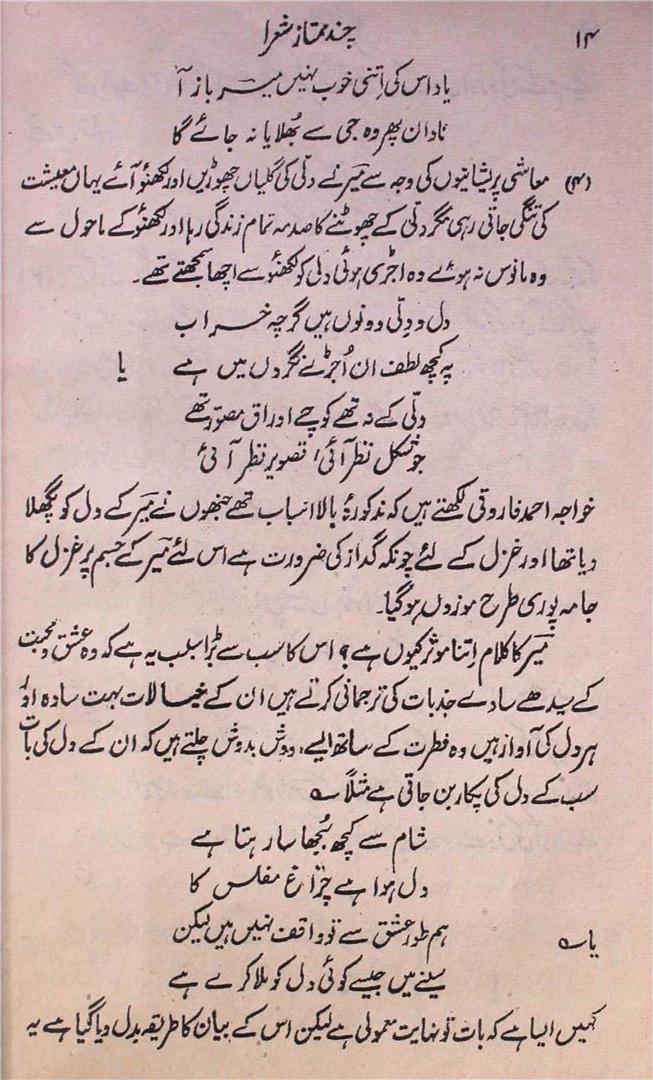 ۱۴
چند ممتاز شعرا
یاد اس کی اتنی خوب نہیں میر باز آ
نادان پھر وہ جی سے بھلایا نہ جائے گا
(۴) معاشی پریشانیوں کی وجہ سے میر نے دلّی کی گلیاں چھوڑیں اور لکھنؤ آئے یہاں معیشت
کی تنگی جاتی رہی مگر دلّی کے چھوٹنے کا صدمہ تمام زندگی رہا اور لکھنؤ کے ماحول سے
وہ مانوس نہ ہوئے وہ اجڑی ہوئی دلی کو لکھنؤ سے اچھا سمجھتے تھے۔
دل و دلّی دونوں ہیں گرچہ خراب
پہ کچھ لطف ان اُجڑے نگروں میں ہے یا
دلّی کے نہ تھے کوچے اوراق مصور تھے
جو شکل نظر آئی، تصویر نظر آئی
خواجہ احمد فاروقی لکھتے ہیں کہ مذکورۂ بالا اسباب تھے جنھوں نے میر کے دل کو پگھلا
دیا تھا اور غزل کے لئے چونکہ گداز کی ضرورت ہے اس لئے میر کے جسم پر غزل کا
جامہ پوری طرح موزوں ہو گیا۔
میر کا کلام اتنا موثر کیوں ہے؟ اس کا سب سے بڑا سبب یہ ہے کہ وہ عشق و محبت
کے سیدھے سادے جذبات کی ترجمانی کرتے ہیں ان کے خیالات بہت سادہ اور
ہر دل کی آواز ہیں وہ فطرت کے ساتھ ایسے، دوش بدوش چلتے ہیں کہ ان کے دل کی بات
سب کے دل کی پکار بن جاتی ہے مثلاً ؎
شام سے کچھ بُجھا سا رہتا ہے
دل ہوا ہے چراغ مفلس کا
یا ؎ ہم طور عشق سے تو واقف نہیں ہیں لیکن
سینے میں جیسے کوئی دل کو ملا کرے ہے
کہیں ایسا ہے کہ بات تو نہایت معمولی ہے لیکن اس کے بیان کا طریقہ بدل دیا گیا ہے یہ